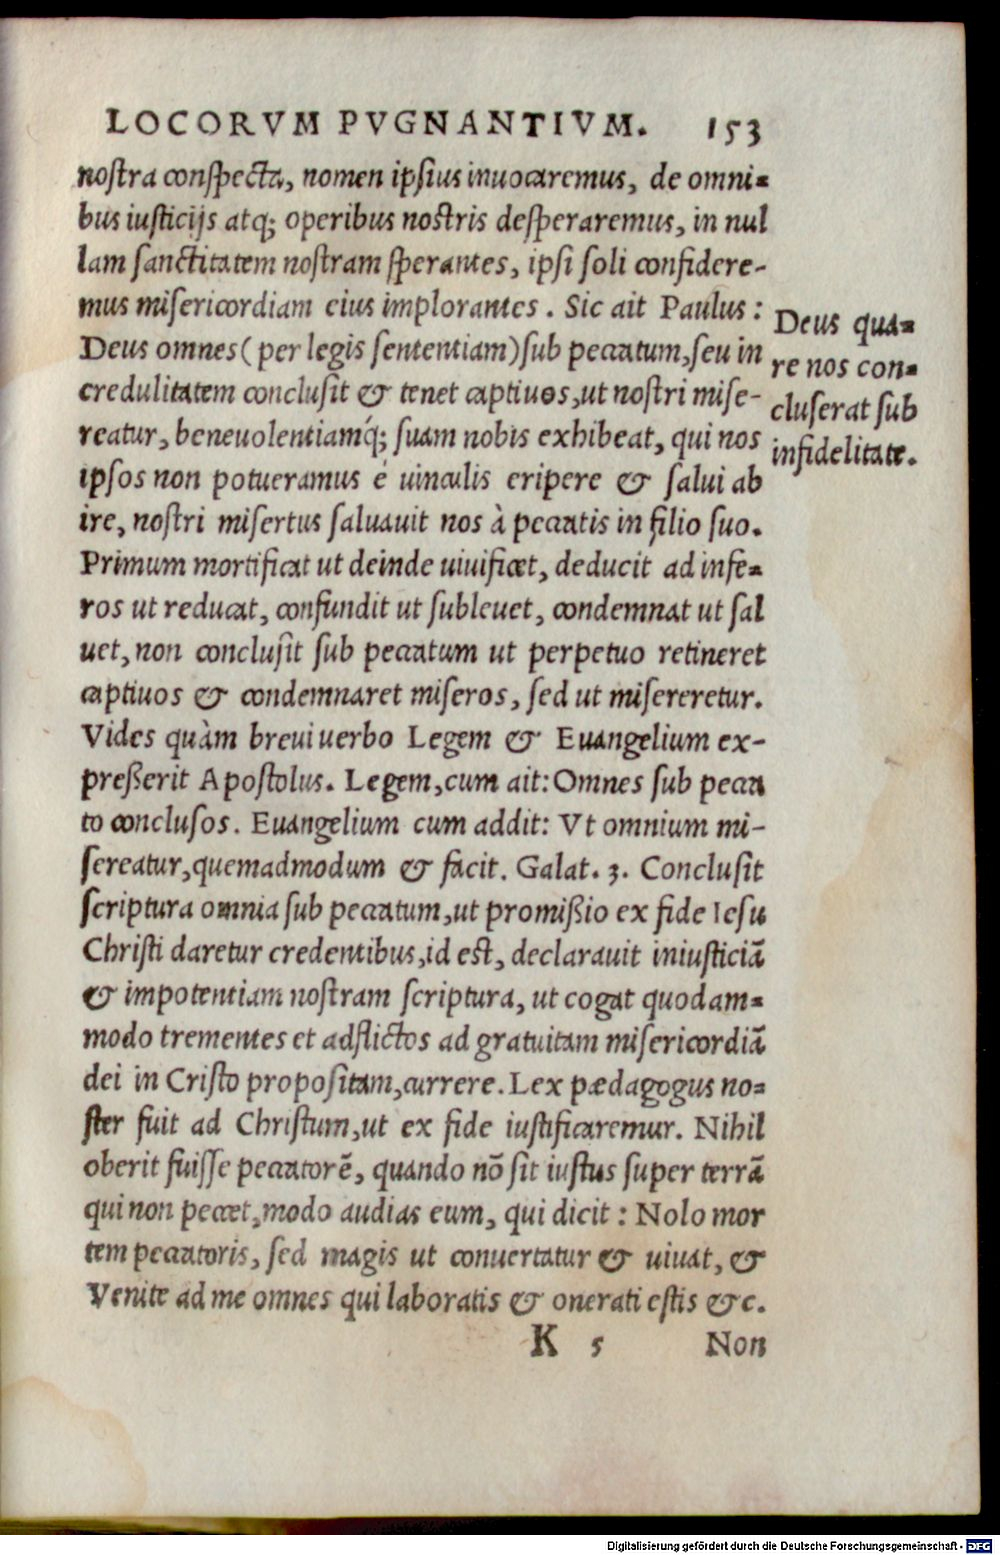 LOCORVM PVGNANTIVM. 153
nostra conspecta, nomen ipsius inuocaremus, de omni=
bus iusticijs atq; operibus nostris desperaremus, in nul
lam sanctitatem nostram sperantes, ipsi soli confidere-
mus misericordiam eius implorantes. Sic ait Paulus:
Deus omnes (per legis sententiam) sub peccatum, seu in
credulitatem conclusit & tenet captiuos, ut nostri mise-
reatur, beneuolentiamq́; suam nobis exhibeat, qui nos
ipsos non potueramus é uinculis eripere & salui ab
ire, nostri misertus saluauit nos à peccatis in filio suo.
Primum mortificat ut deinde uiuificet, deducit ad infe=
ros ut reducat, confundit ut subleuet, condemnat ut sal
uet, non conclusit sub peccatum ut perpetuo retineret
captiuos & condemnaret miseros, sed ut misereretur.
Vides quàm breui uerbo Legem & Euangelium ex-
preßerit Apostolus. Legem, cum ait: Omnes sub pecca
to conclusos. Euangelium cum addit: Vt omnium mi-
sereatur, quemadmodum & facit. Galat. 3. Conclusit
scriptura omnia sub peccatum, ut promißio ex fide Iesu
Christi daretur credentibus, id est, declarauit iniusticiã
& impotentiam nostram scriptura, ut cogat quodam=
modo trementes et adflictos ad gratuitam misericordiã
dei in Cristo propositam, currere. Lex pædagogus no=
ster fuit ad Christum, ut ex fide iustificaremur. Nihil
oberit fuisse peccatorẽ, quando nõ sit iustus super terrã
qui non peccet, modo audias eum, qui dicit: Nolo mor
tem peccatoris, sed magis ut conuertatur & uiuat, &
Venite ad me omnes qui laboratis & onerati estis &c.
K 5 Non
Deus qua=
re nos con=
cluserat sub
infidelitate.
Digitalisierung gefördert durch die Deutsche Forschungsgemeinschaft - DFG